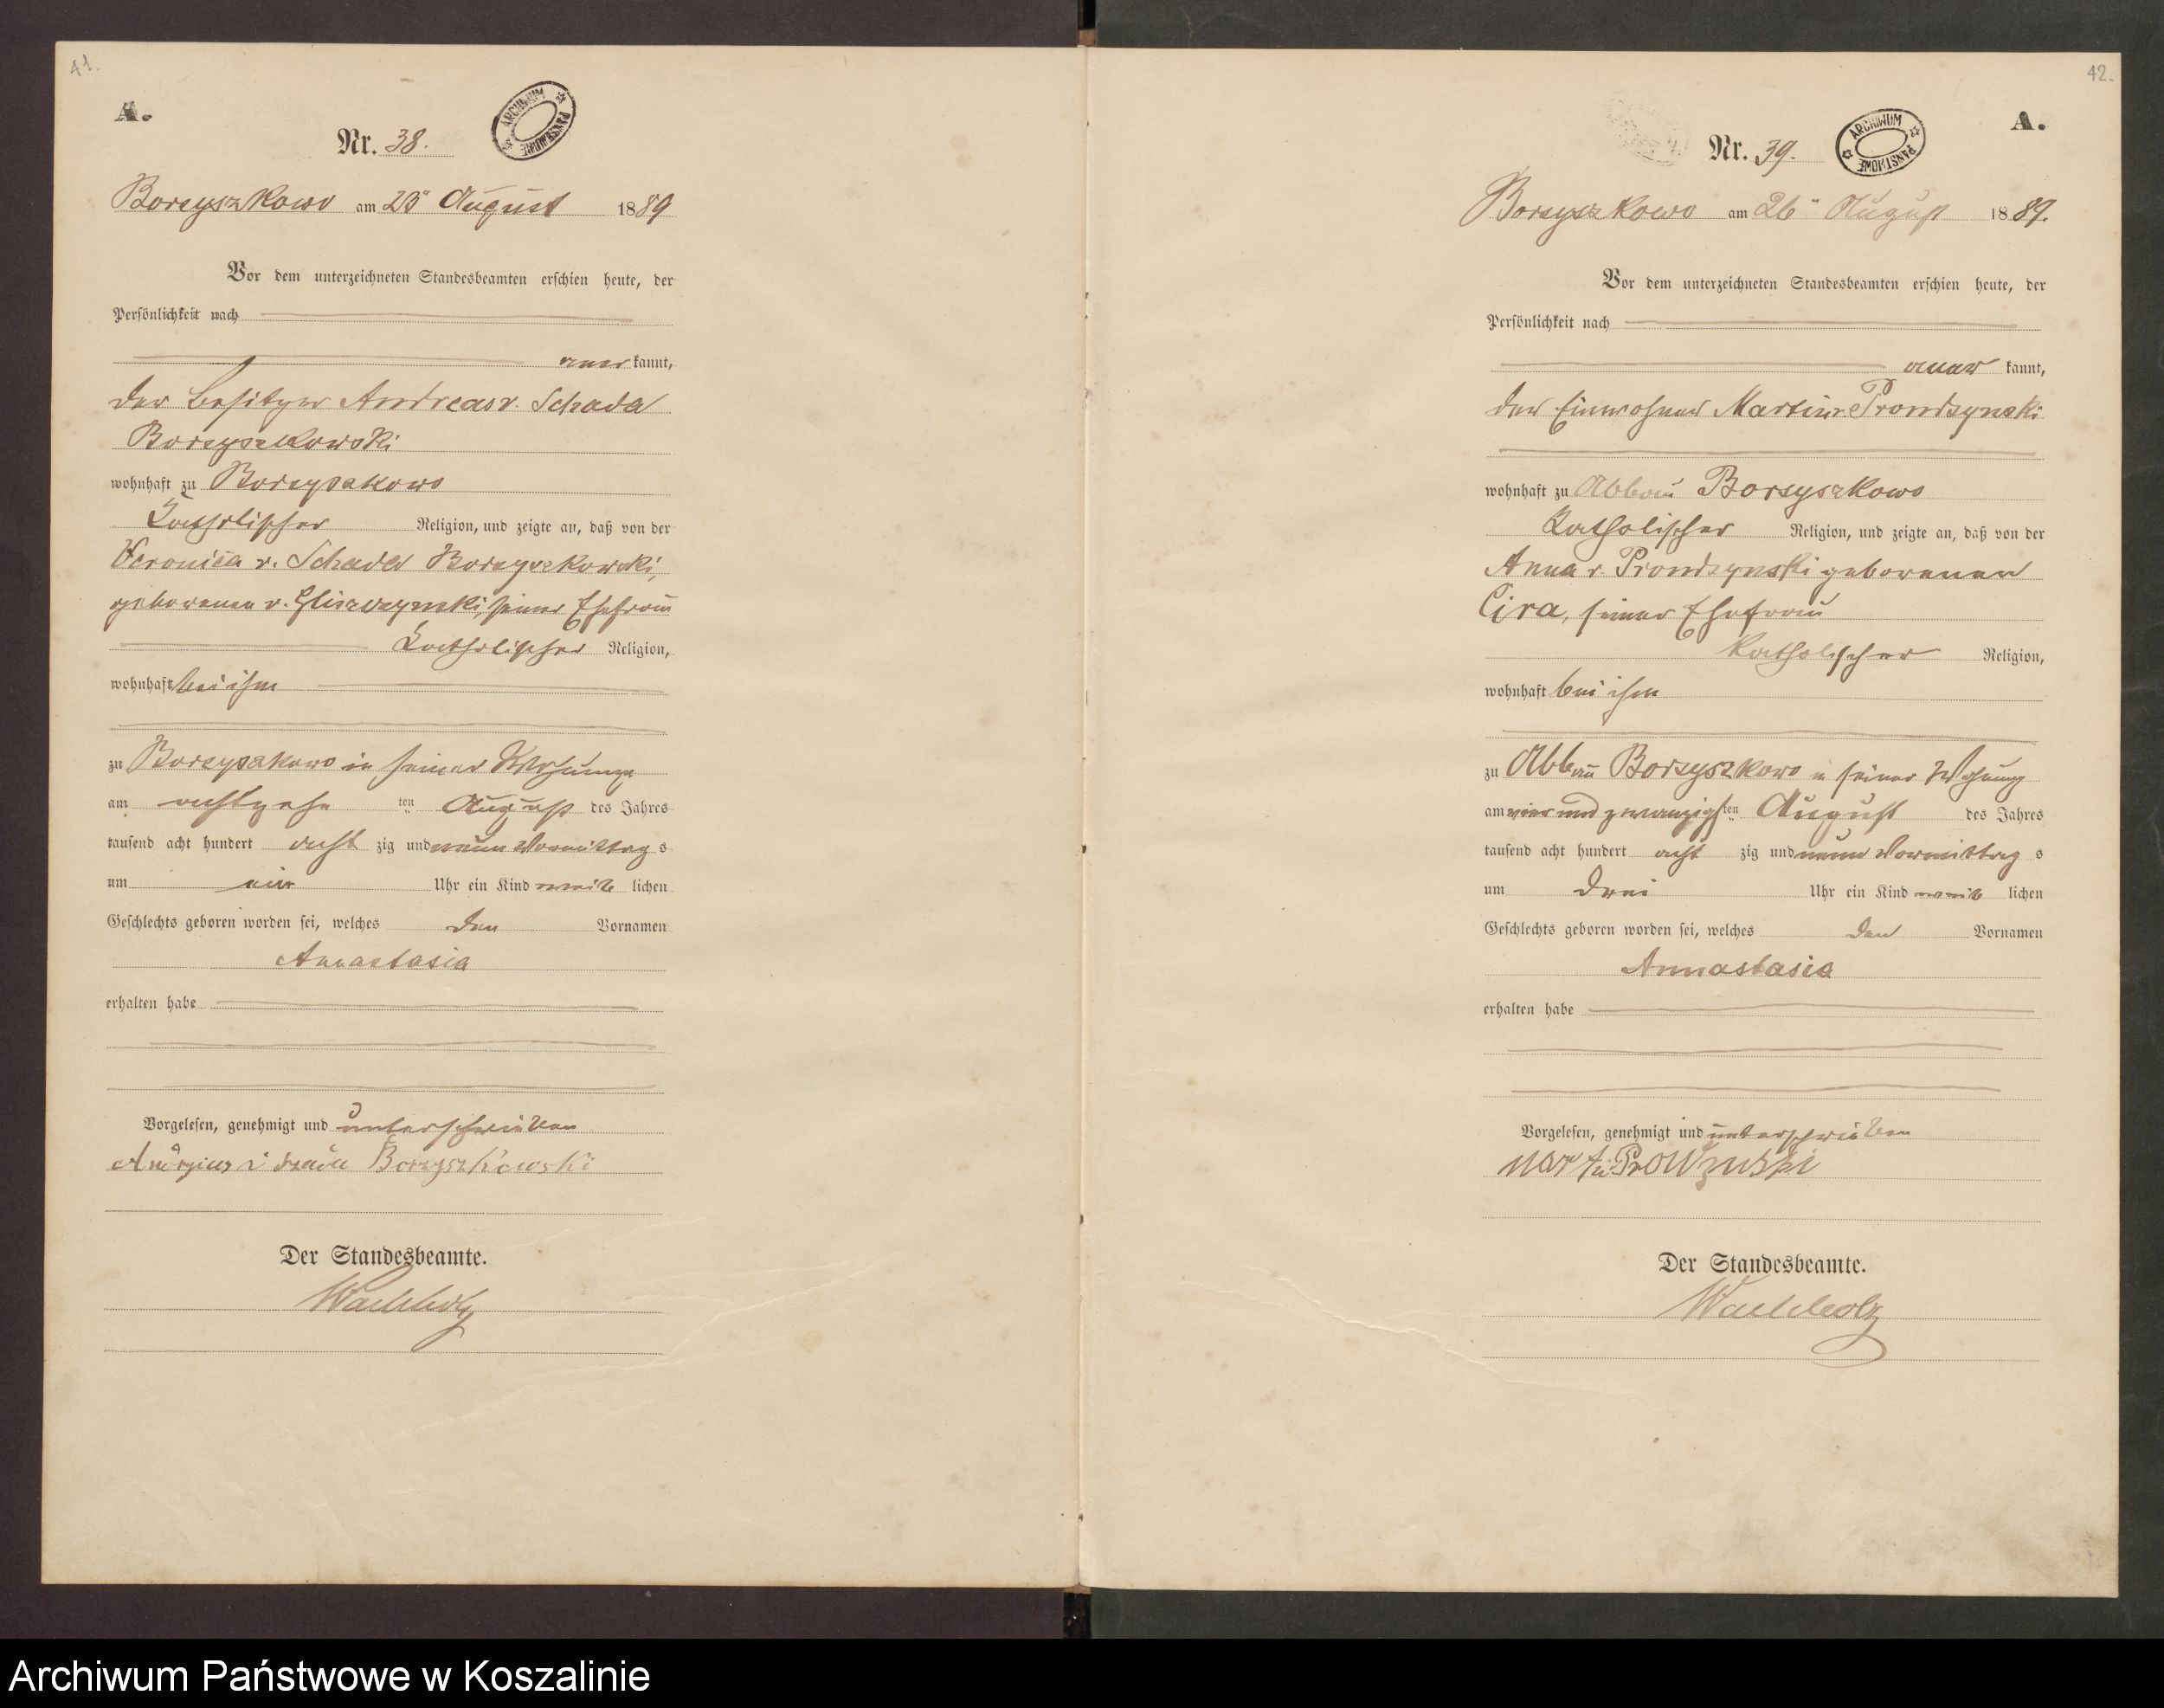 41.
A.
ARCHIWUM PAŃSTWOWE
Nr. 38.
Borzyszkowo am 23ten August 1889
Vor dem unterzeichneten Standesbeamten erschien heute, der
Persönlichkeit nach
kannt,
der Besitzer Andreas v. Schada
Borzyszkowski
wohnhaft zu Borzyszkowo
katholischer Religion, und zeigte an, daß von der
Veronica v. Schada Borzyszkowski,
geborenen v. Gliszczynski, seiner Ehefrau
katholischer Religion,
wohnhaft bei ihm
zu Borzyszkowo in seiner Wohnung
am achtzehn ten August des Jahres
tausend acht hundert acht zig und neun Vormittag s
um ein Uhr ein Kind weib lichen
Geschlechts geboren worden sei, welches den Vornamen
Annastasia
erhalten habe
Vorgelesen, genehmigt und unterschrieben
Borzyszkowski
Der Standesbeamte.
Wachholz
42.
A.
ARCHIWUM PAŃSTWOWE
Nr. 39.
Borzyszkowo am 26ten August 1889.
Vor dem unterzeichneten Standesbeamten erschien heute, der
Persönlichkeit nach
kannt,
der Einwohner Martin v. Prondzynski
wohnhaft zu Abbau Borzyszkowo
katholischer Religion, und zeigte an, daß von der
Anna v. Prondzynski geborenen
Cira, seiner Ehefrau
katholischer Religion,
wohnhaft bei ihm
zu Abbau Borzyszkowo in seiner Wohnung
am vier und zwanzigsten August des Jahres
tausend acht hundert acht zig und neun Vormittag s
um drei Uhr ein Kind weib lichen
Geschlechts geboren worden sei, welches den Vornamen
Annastasia
erhalten habe
Vorgelesen, genehmigt und unterschrieben
Der Standesbeamte.
Wachholz
Archiwum Państwowe w Koszalinie